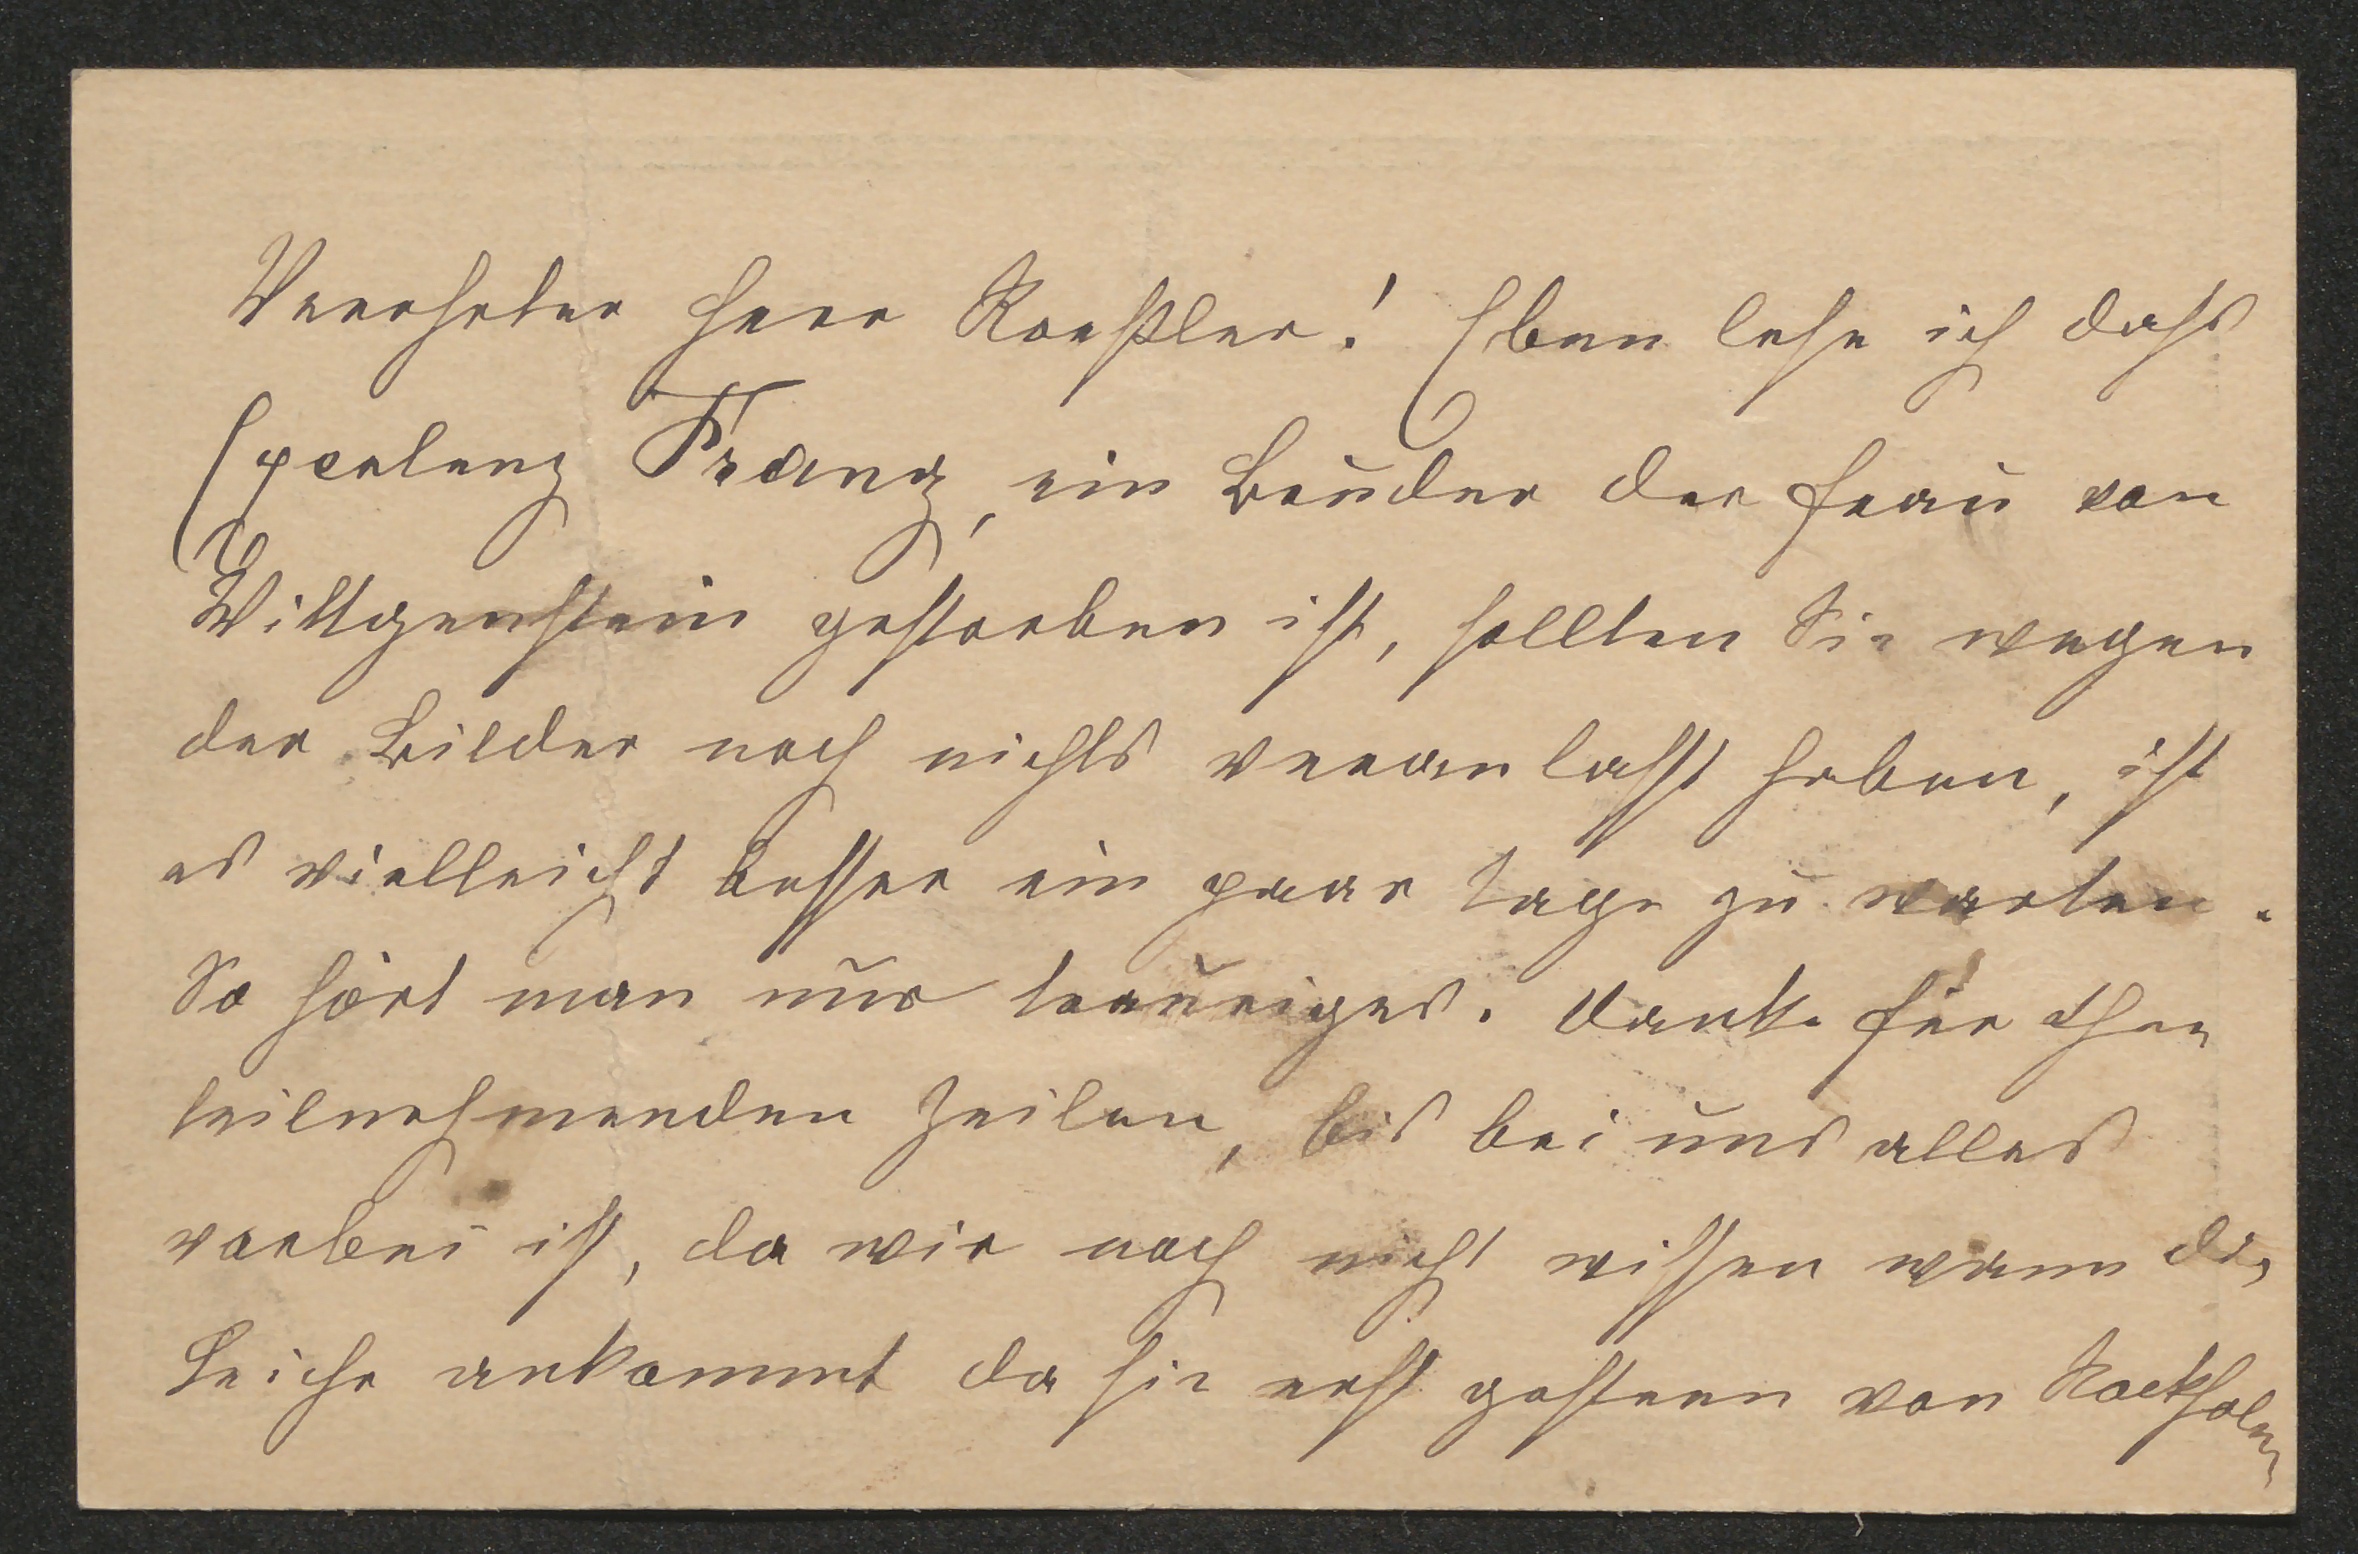 Verehrter Herr Roeßler! Eben lese ich dass
Exzelenz Franz, ein Bruder der Frau von
Wittgenstein gestorben ist, sollten Sie wegen
der Bilder noch nichts veranlasst haben, ist
es vielleicht besser ein paar Tage zu warten.
So hört man nur trauriges. Danke für Ihre
teilnehmenden Zeilen, bis bei uns alles
vorbei ist, da wir noch nicht wissen wann die
Leiche ankommt da sie erst gestern von